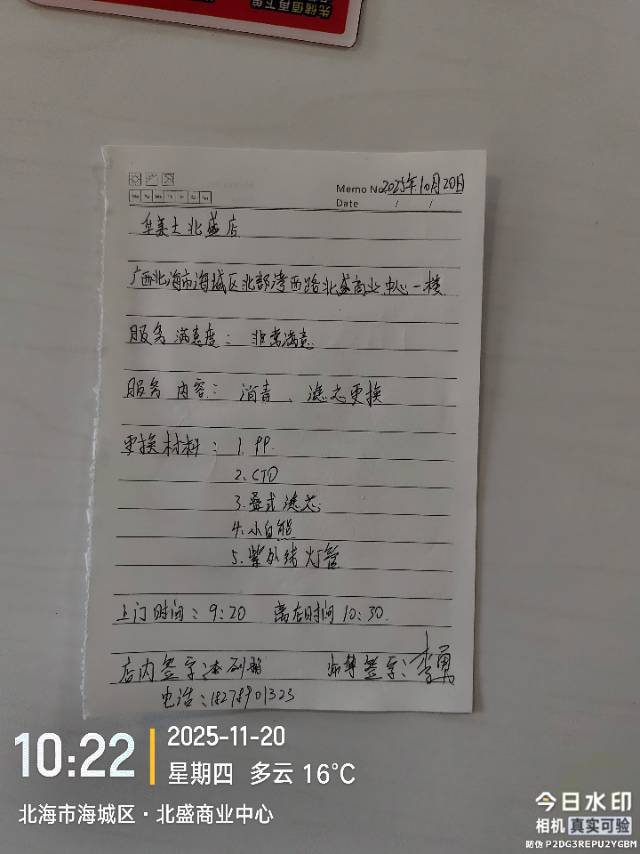 先储值再下单
Memo No 2025年10月20日
Mo Tu We Th Fr Sa Su
Date / /
华美士北盛店
广西北海市海城区北部湾西路北盛商业中心一楼
服务满意度：非常满意
服务内容：消毒、滤芯更换
更换材料：1.PP.
2.CTO
3.叠式滤芯
4.小白熊
5.紫外线灯管
上门时间：9:20 离店时间10:30.
店内签字：
师傅签字：李勇
电话：18278901323
10:22
2025-11-20
星期四 多云 16°C
北海市海城区·北盛商业中心
今日水印
相机 真实可验
防伪 P2DG3REPU2YGBM